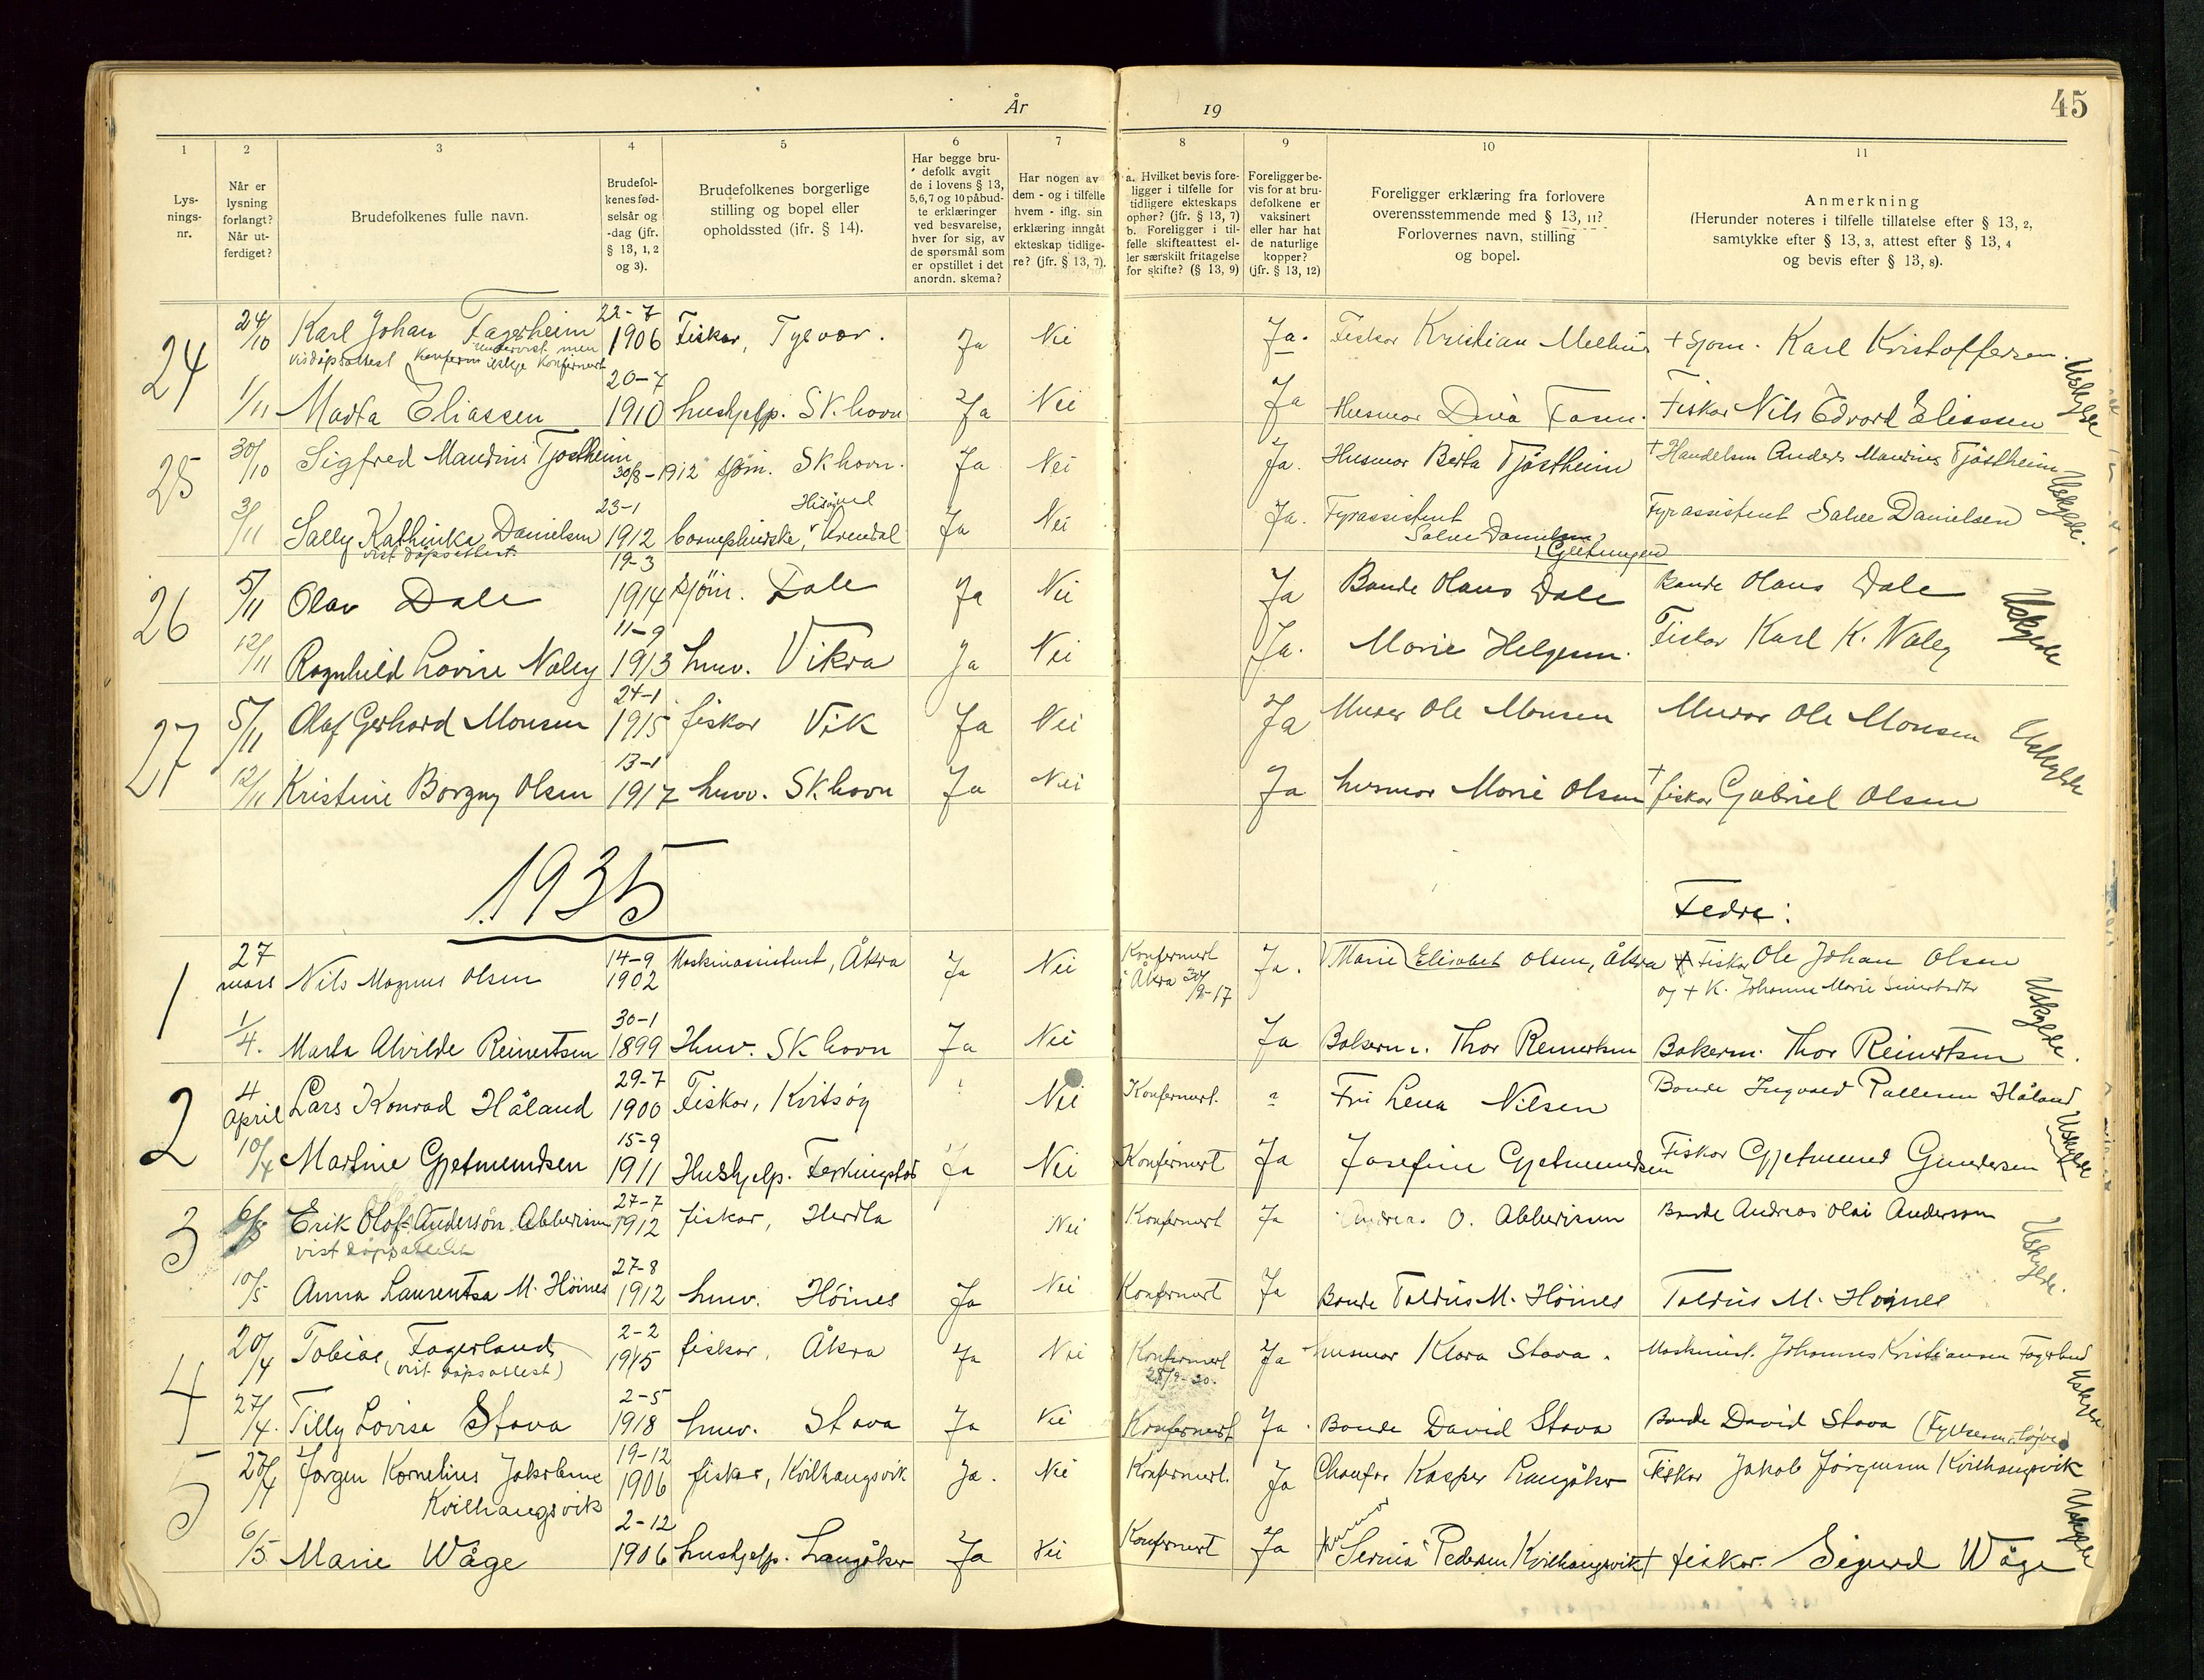 År 19
45
1
Lysningsnr.
2
Når er lysning forlangt? Når utferdiget?
3
Brudefolkenes fulle navn.
4
Brudefolkenes fødselsår og -dag (jfr. § 13, 1, 2 og 3).
5
Brudefolkenes borgerlige stilling og bopel eller opholdssted (jfr. § 14).
6
Har begge brudefolk avgit de i lovens § 13, 5, 6, 7 og 10 påbudte erklæringer ved besvarelse, hver for sig, av de spørsmål som er opstillet i det anordn. skema?
7
Har nogen av dem - og i tilfelle hvem - iflg. sin erklæring inngåt ekteskap tidligere? (jfr. § 13, 7).
8
a. Hvilket bevis foreligger i tilfelle for tidligere ekteskaps ophør? (jfr. § 13, 7)
b. Foreligger i tilfelle skifteattest eller særskilt fritagelse for skifte? (§ 13, 9)
9
Foreligger bevis for at brudefolkene er vaksinert eller har hat de naturlige kopper? (jfr. § 13, 12)
10
Foreligger erklæring fra forlovere overensstemmende med § 13, 11? Forlovernes navn, stilling og bopel.
11
Anmerkning
(Herunder noteres i tilfelle tillatelse efter § 13, 2, samtykke efter § 13, 3, attest efter § 13, 4 og bevis efter § 13, 8).
24 24/10 Karl Johan Fagerheim 22-7 1906 Fisker, Tysvær. Ja Nei Ja. Fisker Kristian Melhus + Sjøm. Karl Kristoffersen.
1/11 Marta Eliassen 20-7 1910 hushjelp. Sk.havn Ja Nei Ja Husmor Fisker Nils Edvard Eliassen Uskyldte
25 30/10 Sigfred Maudius Tjøstheim 30/8-1912 sjøm. Skhavn. Ja Nei Ja. Husmor Berta Tjøstheim + Handelsm Anders Tjöstheim
3/11 Sally Kathinka Danielsen 23-1 1912 Arendal Ja Nei Ja. Fyrassistent Salve Danielsen, Fyrassistent Salve Danielsen
vist dåpsattest
26 5/11 Olav Dale 19-3 1914 sjöm. Dale Ja Nei Ja Bonde Olaus Dale Bonde Olaus Dale
12/11 Ragnhild Lovise Naley 11-9 1913 husv. Vikra Ja Nei Ja. Marie Helgesen. Fisker Karl K. Naley
27 5/11 Olaf Gerhard Monsen 24-1 1915 fisker Vik Ja Nei Ja Murer Ole Monsen Murer Ole Monsen
12/11 Kristine Borgny Olsen 13-1 1917 husv. Sk.havn Ja Nei Ja husmor Marie Olsen + fisker Gabriel Olsen
1935
Fedre:
1 27 mars Nils Magnus Olsen 14-9 1902 Maskinassistent, Åkra Ja Nei Konfirmert i Åkra Ja. Marie Elisabet Olsen, Åkra + Fisker Ole Johan Olsen
og + K. Johanna Marie
1/4. Marta Alvilde Reinertsen 30-1 1899 Husv. Sk havn Ja Nei Ja Bakerm. Thor Reinertsen Bakerm. Thor Reinertsen
2 4 April Lars Konrad Håland 29-7 1900 Fisker, Kvitsöy Nei Konfirmert. Fru Lena Nilsen Bonde Ingvald Håland
10/4 Martine Gjetmundsen 15-9 1911 Hushjelp. Ferkingstad Ja Nei Konfirmert Ja Josefine Gjetmundsen Fisker Gjetmund Gundersen
3 6/5 Erik Olof Anderson Abberisen 27-7 1912 fisker, Herdla Nei Konfirmert Ja Andreas O. Abberisen Bonde Andreas Olai Anderson
vist dåpsattest
10/5 Anna Laurentsa M. Höines 27-8 1912 husv. Höines Ja Nei Konfirmert Ja Bonde M. Höines M. Höines
4 20/4 Tobias Fagerland 2-2 1915 fisker, Åkra Ja Nei Konfirmert Ja husmor Klara Stava. Maskinist. Johannes Kristiansen Fagerland
(vist dåpsattest)
27/4. Tilly Lovisa Stava 2-5 1918 husv. Stava Ja Nei Konfirmert Ja. Bonde David Stava Bonde David Stava
5 Jørgen Kornelius Jakobsen Kvilhaugsvik 19-12 1906 fisker, Kvilhaugsvik Ja. Nei Konfirmert. Ja Kasper Langåker Fisker Jakob Jörgensen Kvilhaugsvik
6/5 Marie Wåge 2-12 1906 hushjelp. Langåker Ja Nei Konfirmert Ja Serina Pedersen Kvilhaugsvik + fisker. Sigurd Wåge